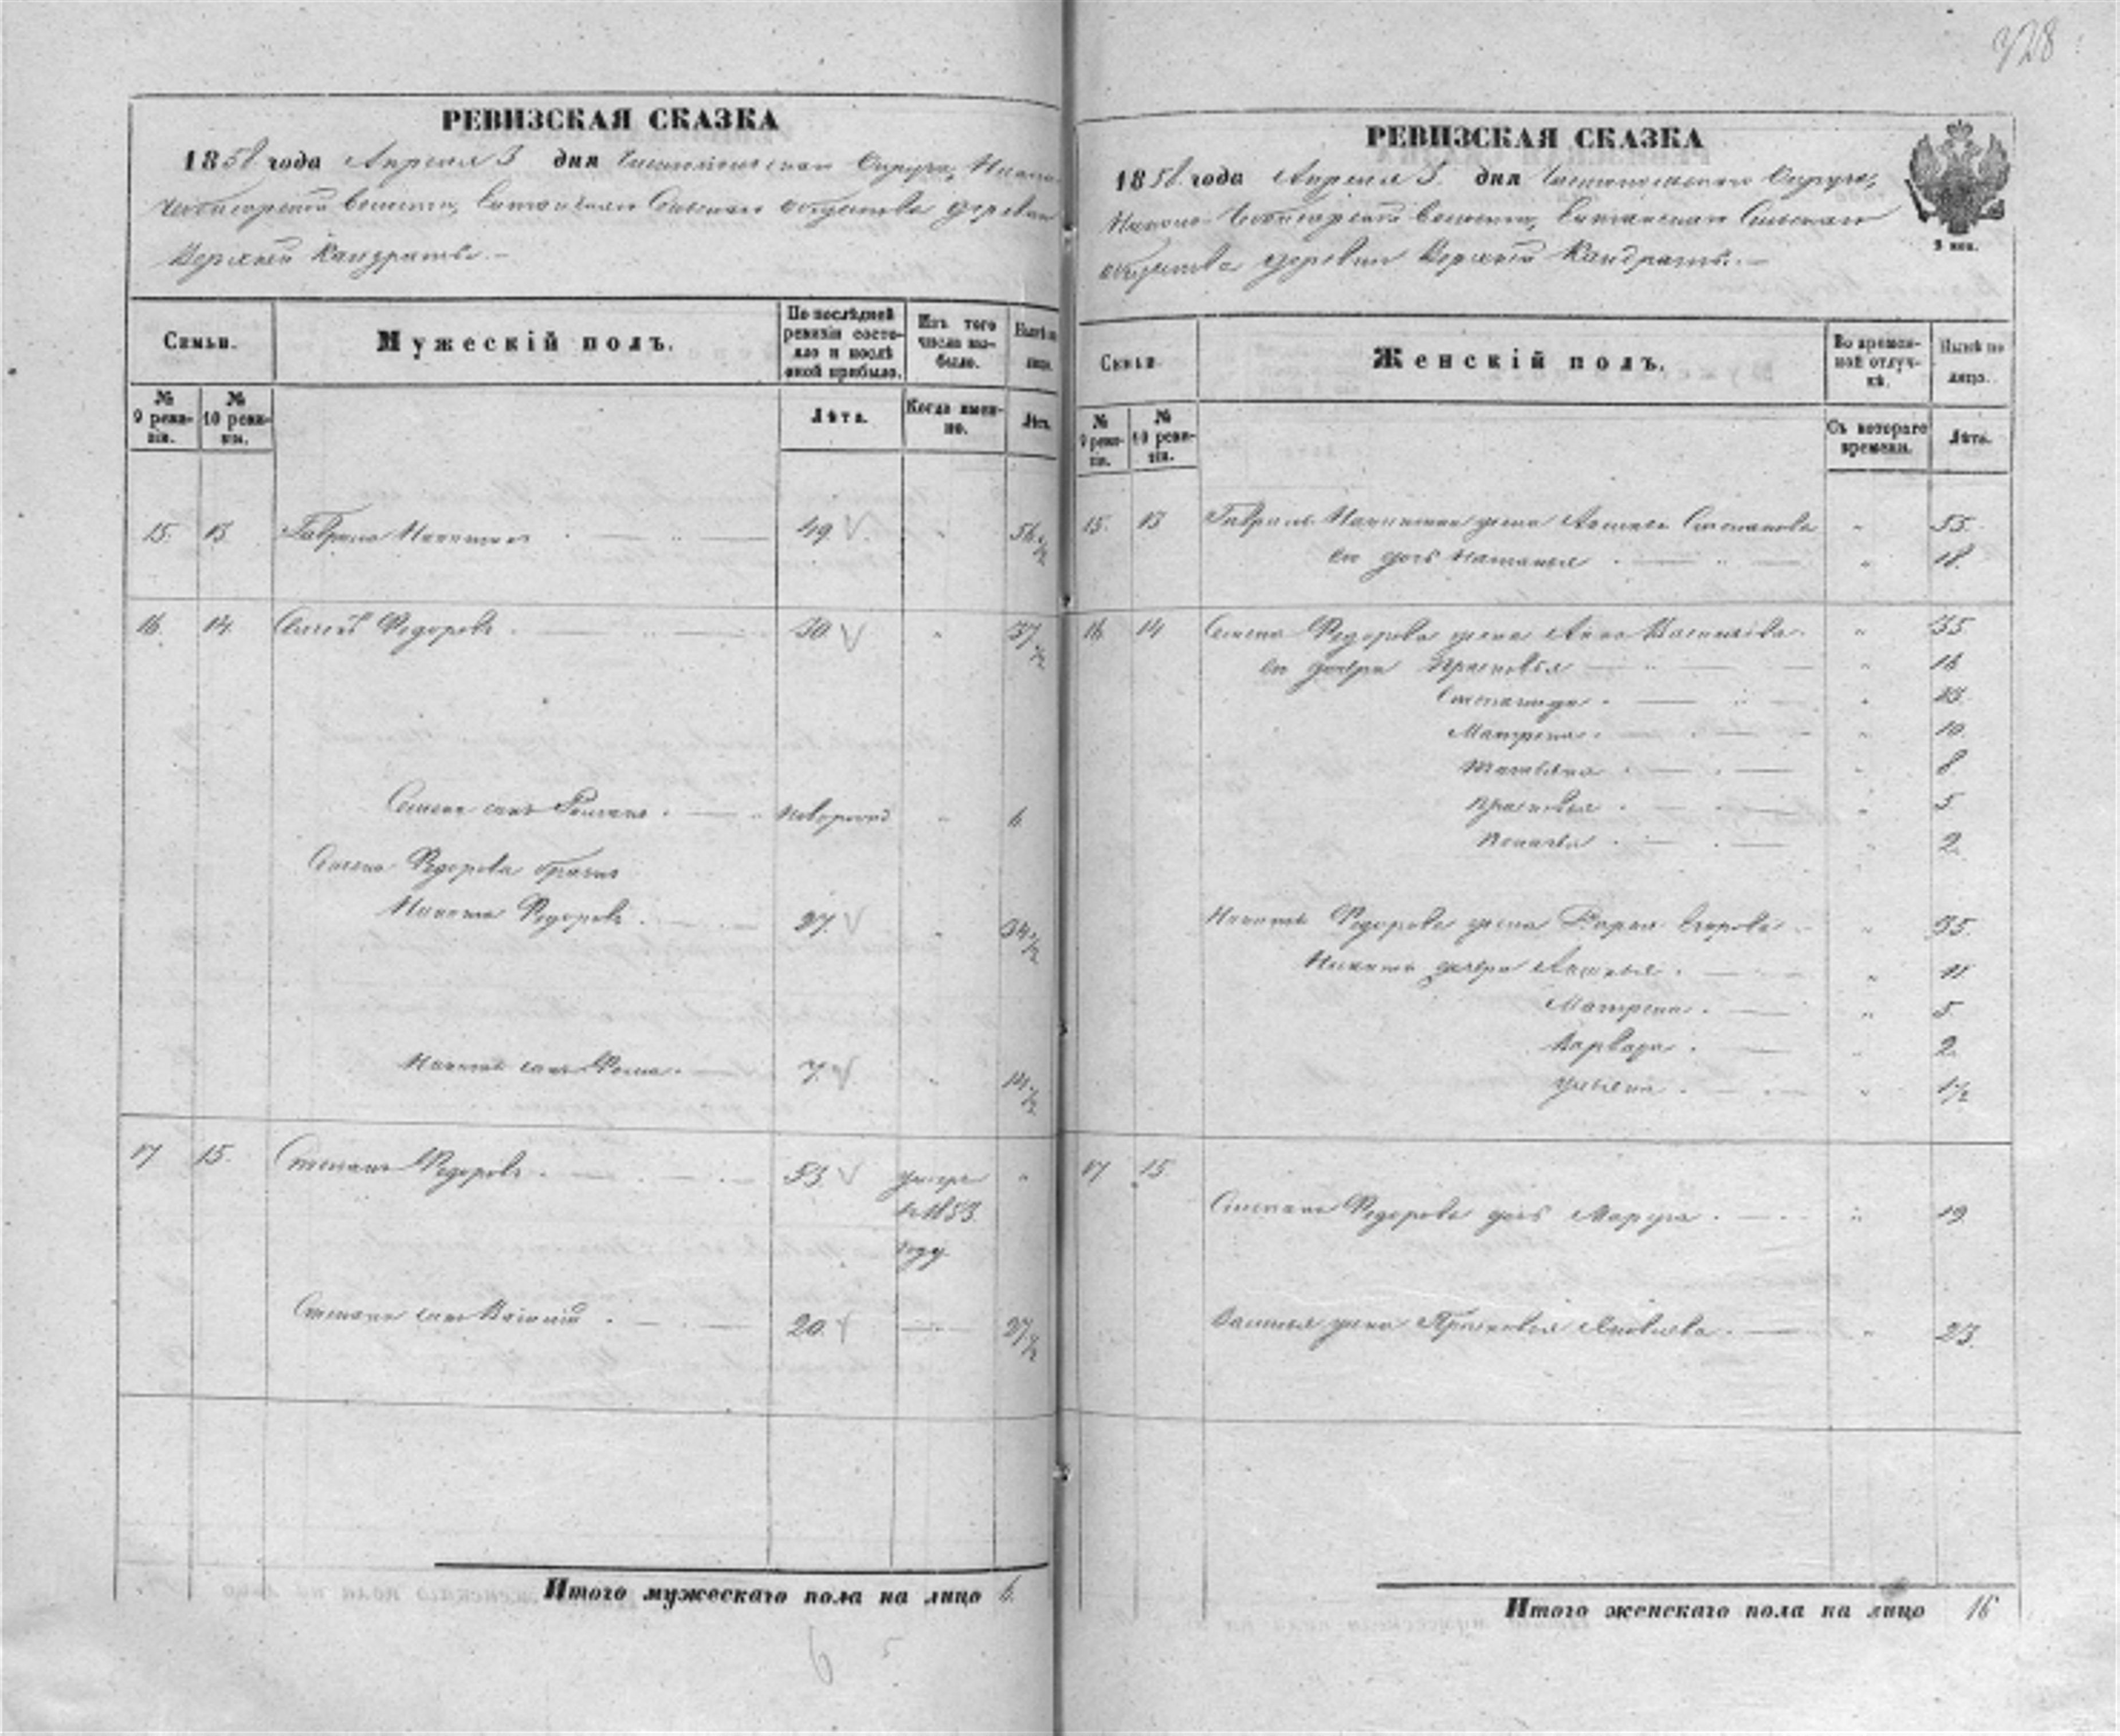 328
РЕВИЗСКАЯ СКАЗКА
1858 года Апреля 3 дня Чистопольскаго Округа,
деревни
Верхней Кандраты.—
Семьи.
Мужескій полъ.
По послѣдней ревизіи состояло и послѣ оной прибыло.
Изъ того числа выбыло.
Нынѣ на лицо.
№ 9 ревизіи.
№ 10 ревизіи.
Лѣта.
Когда именно.
Лѣта.
15. 13 Гаврило Никитинъ 49. 56 1/2
16. 14. Семенъ Федоровъ 30. 37 1/2
Семена сынъ Романъ новорожд 6
Семена Федорова братья
Никита Федоровъ 27. 34 1/2
Никиты сынъ Фома 7 14 1/2
17 15. Степанъ Федоровъ 53 умеръ
въ 1853
году
Степана сынъ Василій 20. 27 1/2
Итого мужескаго пола на лицо 6.
6
РЕВИЗСКАЯ СКАЗКА
1858 года Апреля 3 дня Чистопольскаго Округа,
волости, Сельскаго
общества деревни Верхней Кандраты.—
3 коп.
Семьи
Женскій полъ.
Во временной отлучкѣ.
Нынѣ на лицо.
№ 9 ревизіи.
№ 10 ревизіи.
Съ котораго времени.
Лѣта.
15. 13 Гаврилы Никитина жена Степанова 55.
его дочь Наталья 18.
16. 14 Семена Федорова жена Анна Васильева 35.
его дочери Прасковья 16
Степанида 13.
Матрена 10.
Татьяна 8
Прасковья 5
2.
Никиты Федорова жена Дарья Егорова 35.
Никиты дочери 11.
Матрена 5
Варвара 2
Ульяна 1/2
17 15.
Степана Федорова дочь Марфа 19
Василья жена Прасковья Яковлева 23.
Итого женскаго пола на лицо 16